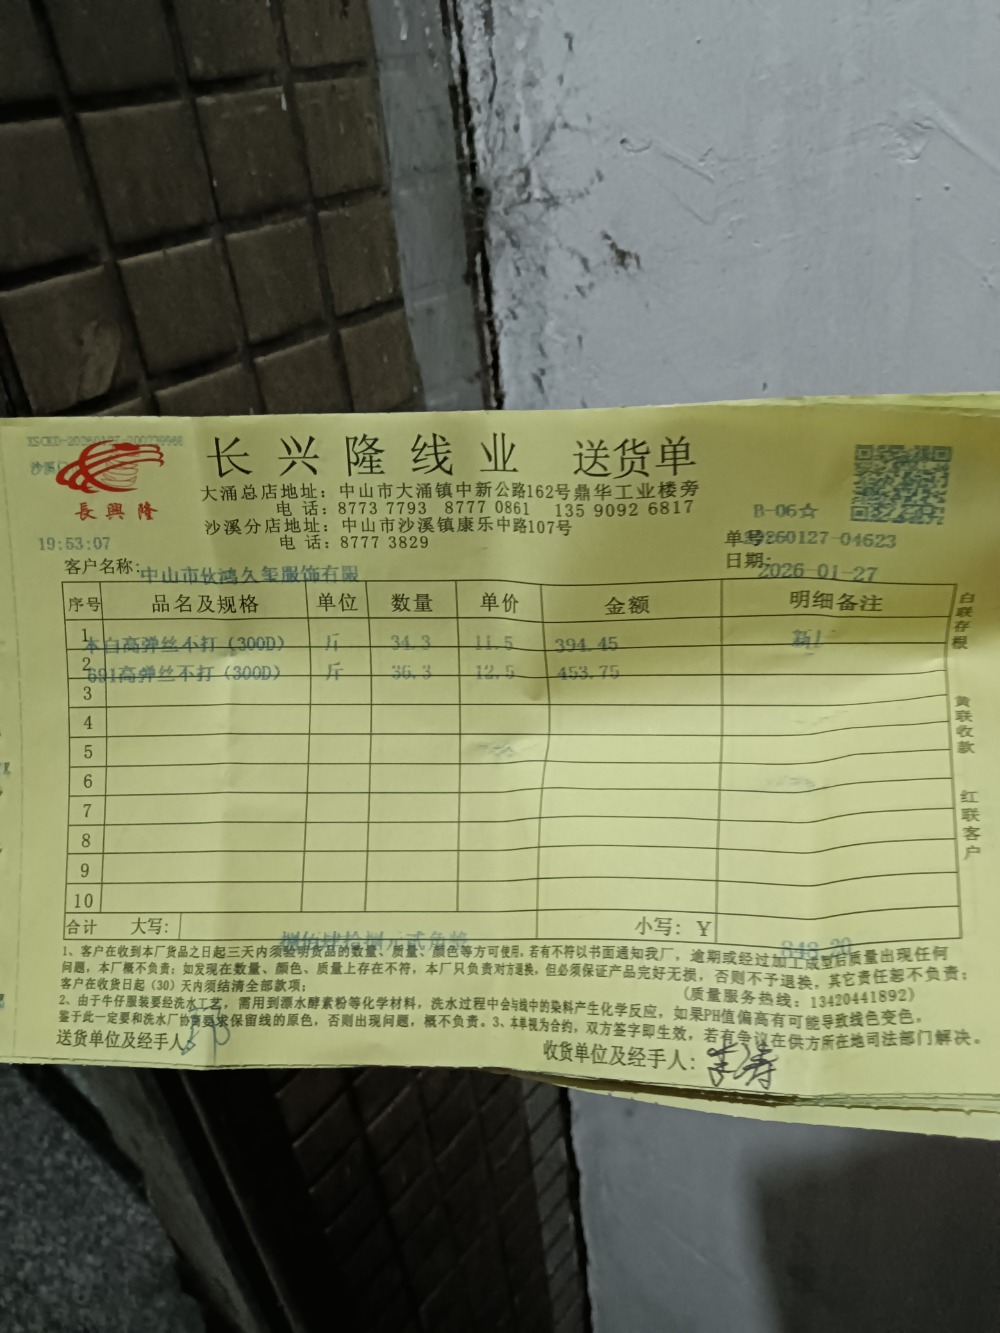 长兴隆线业 送货单
長興隆
大涌总店地址：中山市大涌镇中新公路162号鼎华工业楼旁
电 话：8773 7793 8777 0861 135 9092 6817
沙溪分店地址：中山市沙溪镇康乐中路107号
电 话：8777 3829
B-06☆
19:53:07
单号: 20260127-04623
日期: 2026-01-27
客户名称: 中山市 鸿久玺服饰有限
序号 品名及规格 单位 数量 单价 金额 明细备注
1 本白高弹丝不打（300D） 斤 34.3 11.5 394.45
2 691高弹丝不打（300D） 斤 36.3 12.5 453.75
3
4
5
6
7
8
9
10
白联存根
黄联收款
红联客户
合计 大写: 捌佰肆拾捌元贰角整 小写: Y 848.20
1、客户在收到本厂货品之日起三天内须验明货品的数量、质量、颜色等方可使用，若有不符以书面通知我厂，逾期或经过加工成型后质量出现任何
问题，本厂概不负责；如发现在数量、颜色、质量上存在不符，本厂只负责对方退换，但必须保证产品完好无损，否则不予退换，其它责任恕不负责；
客户在收货日起（30）天内须结清全部款项；
(质量服务热线：13420441892)
2、由于牛仔服装要经洗水工艺，需用到漂水酵素粉等化学材料，洗水过程中会与线中的染料产生化学反应，如果PH值偏高有可能导致线色变色，
鉴于此一定要和洗水厂协商要求保留线的原色，否则出现问题，概不负责。3、本单视为合约，双方签字即生效，若有争议在供方所在地司法部门解决。
送货单位及经手人:
收货单位及经手人: 李涛